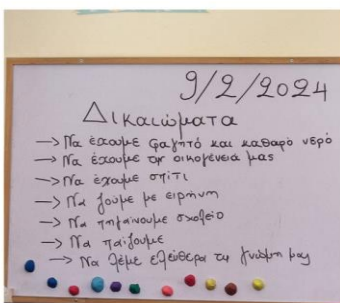 9/2/2024
Δικαιώματα
→ Να έχουμε φαγητό και καθαρό νερό
→ Να έχουμε την οικογένεια μας
→ Να έχουμε σπίτι
→ Να ζούμε με ειρήνη
→ Να πηγαίνουμε σχολείο
→ Να παίζουμε
→ Να λέμε ελεύθερα τη γνώμη μας